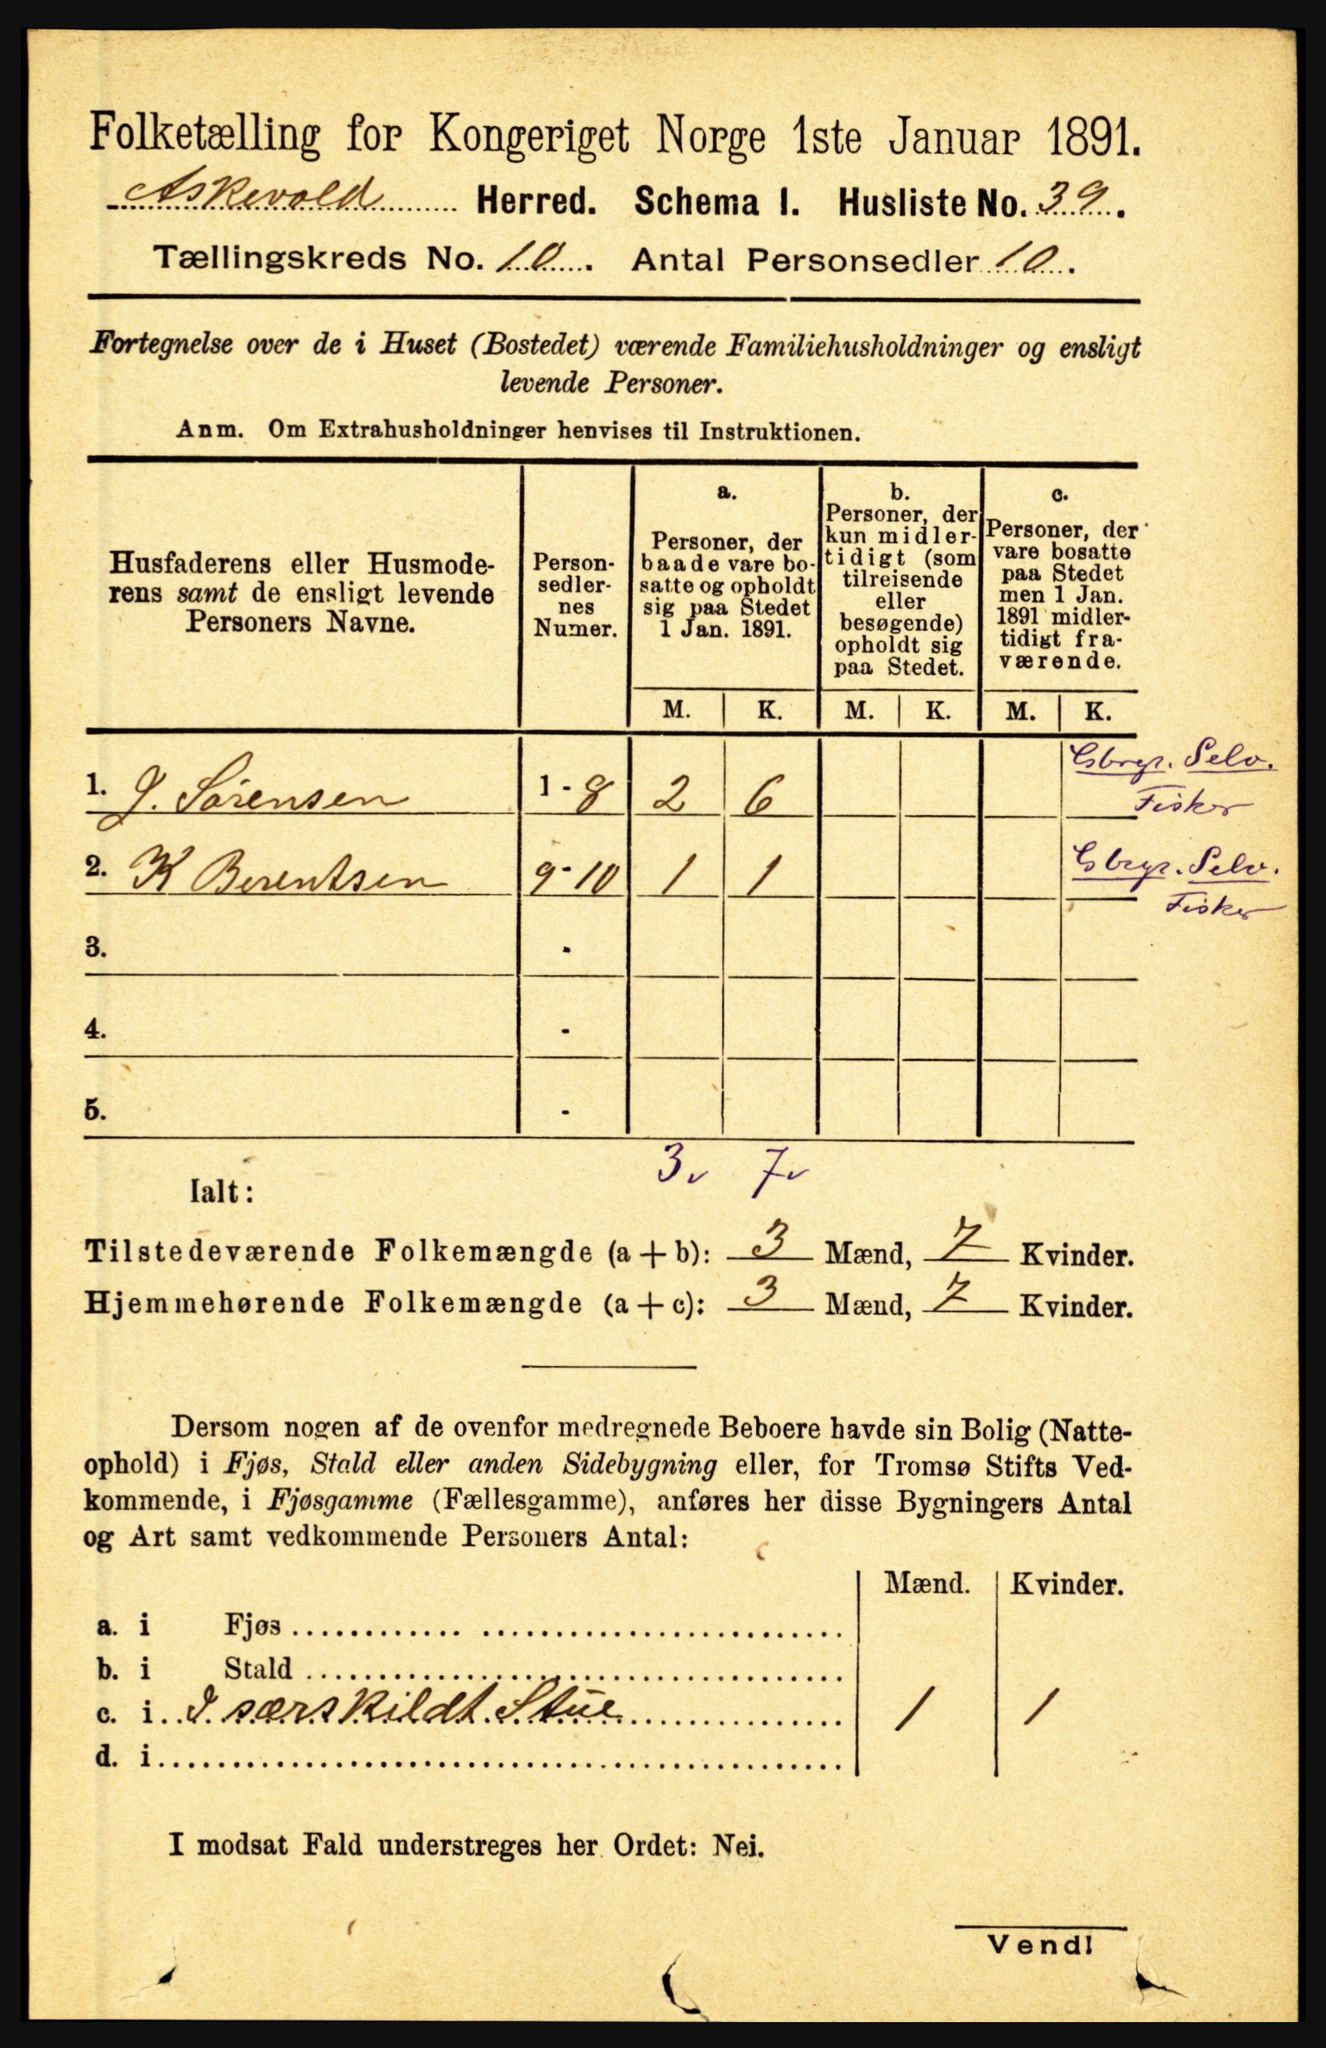 Folketælling for Kongeriget Norge 1ste Januar 1891.
Askevold Herred. Schema I. Husliste No. 39.
Tællingskreds No. 10. Antal Personsedler 10.
Fortegnelse over de i Huset (Bostedet) værende Familiehusholdninger og ensligt
levende Personer.
Anm. Om Extrahusholdninger henvises til Instruktionen.
Husfaderens eller Husmode-
rens samt de ensligt levende
Personers Navne.
Person-
sedler-
nes
Numer.
a.
Personer, der
baade vare bo-
satte og opholdt
sig paa Stedet
1 Jan. 1891.
b.
Personer, der
kun midler-
tidigt (som
tilreisende
eller
besøgende)
opholdt sig
paa Stedet.
c.
Personer, der
vare bosatte
paa Stedet
men 1 Jan.
1891 midler-
tidigt fra-
værende.
M. K. M. K. M. K.
1. J. Sørensen 1 - 8 2 6 Gbrgr. Selv.
Fisker
2. K Berentsen 9 - 10 1 1 Gbrgr. Selv.
Fisker
3. -
4. -
5. -
3 v 7 v
Ialt:
Tilstedeværende Folkemængde (a + b): 3 Mænd, 7 Kvinder.
Hjemmehørende Folkemængde (a + c): 3 Mænd, 7 Kvinder.
Dersom nogen af de ovenfor medregnede Beboere havde sin Bolig (Natte-
ophold) i Fjøs, Stald eller anden Sidebygning eller, for Tromsø Stifts Ved-
kommende, i Fjøsgamme (Fællesgamme), anføres her disse Bygningers Antal
og Art samt vedkommende Personers Antal:
Mænd. Kvinder.
a. i Fjøs
b. i Stald
c. i I særskildt Stue 1 1
d. i
I modsat Fald understreges her Ordet: Nei.
Vend!